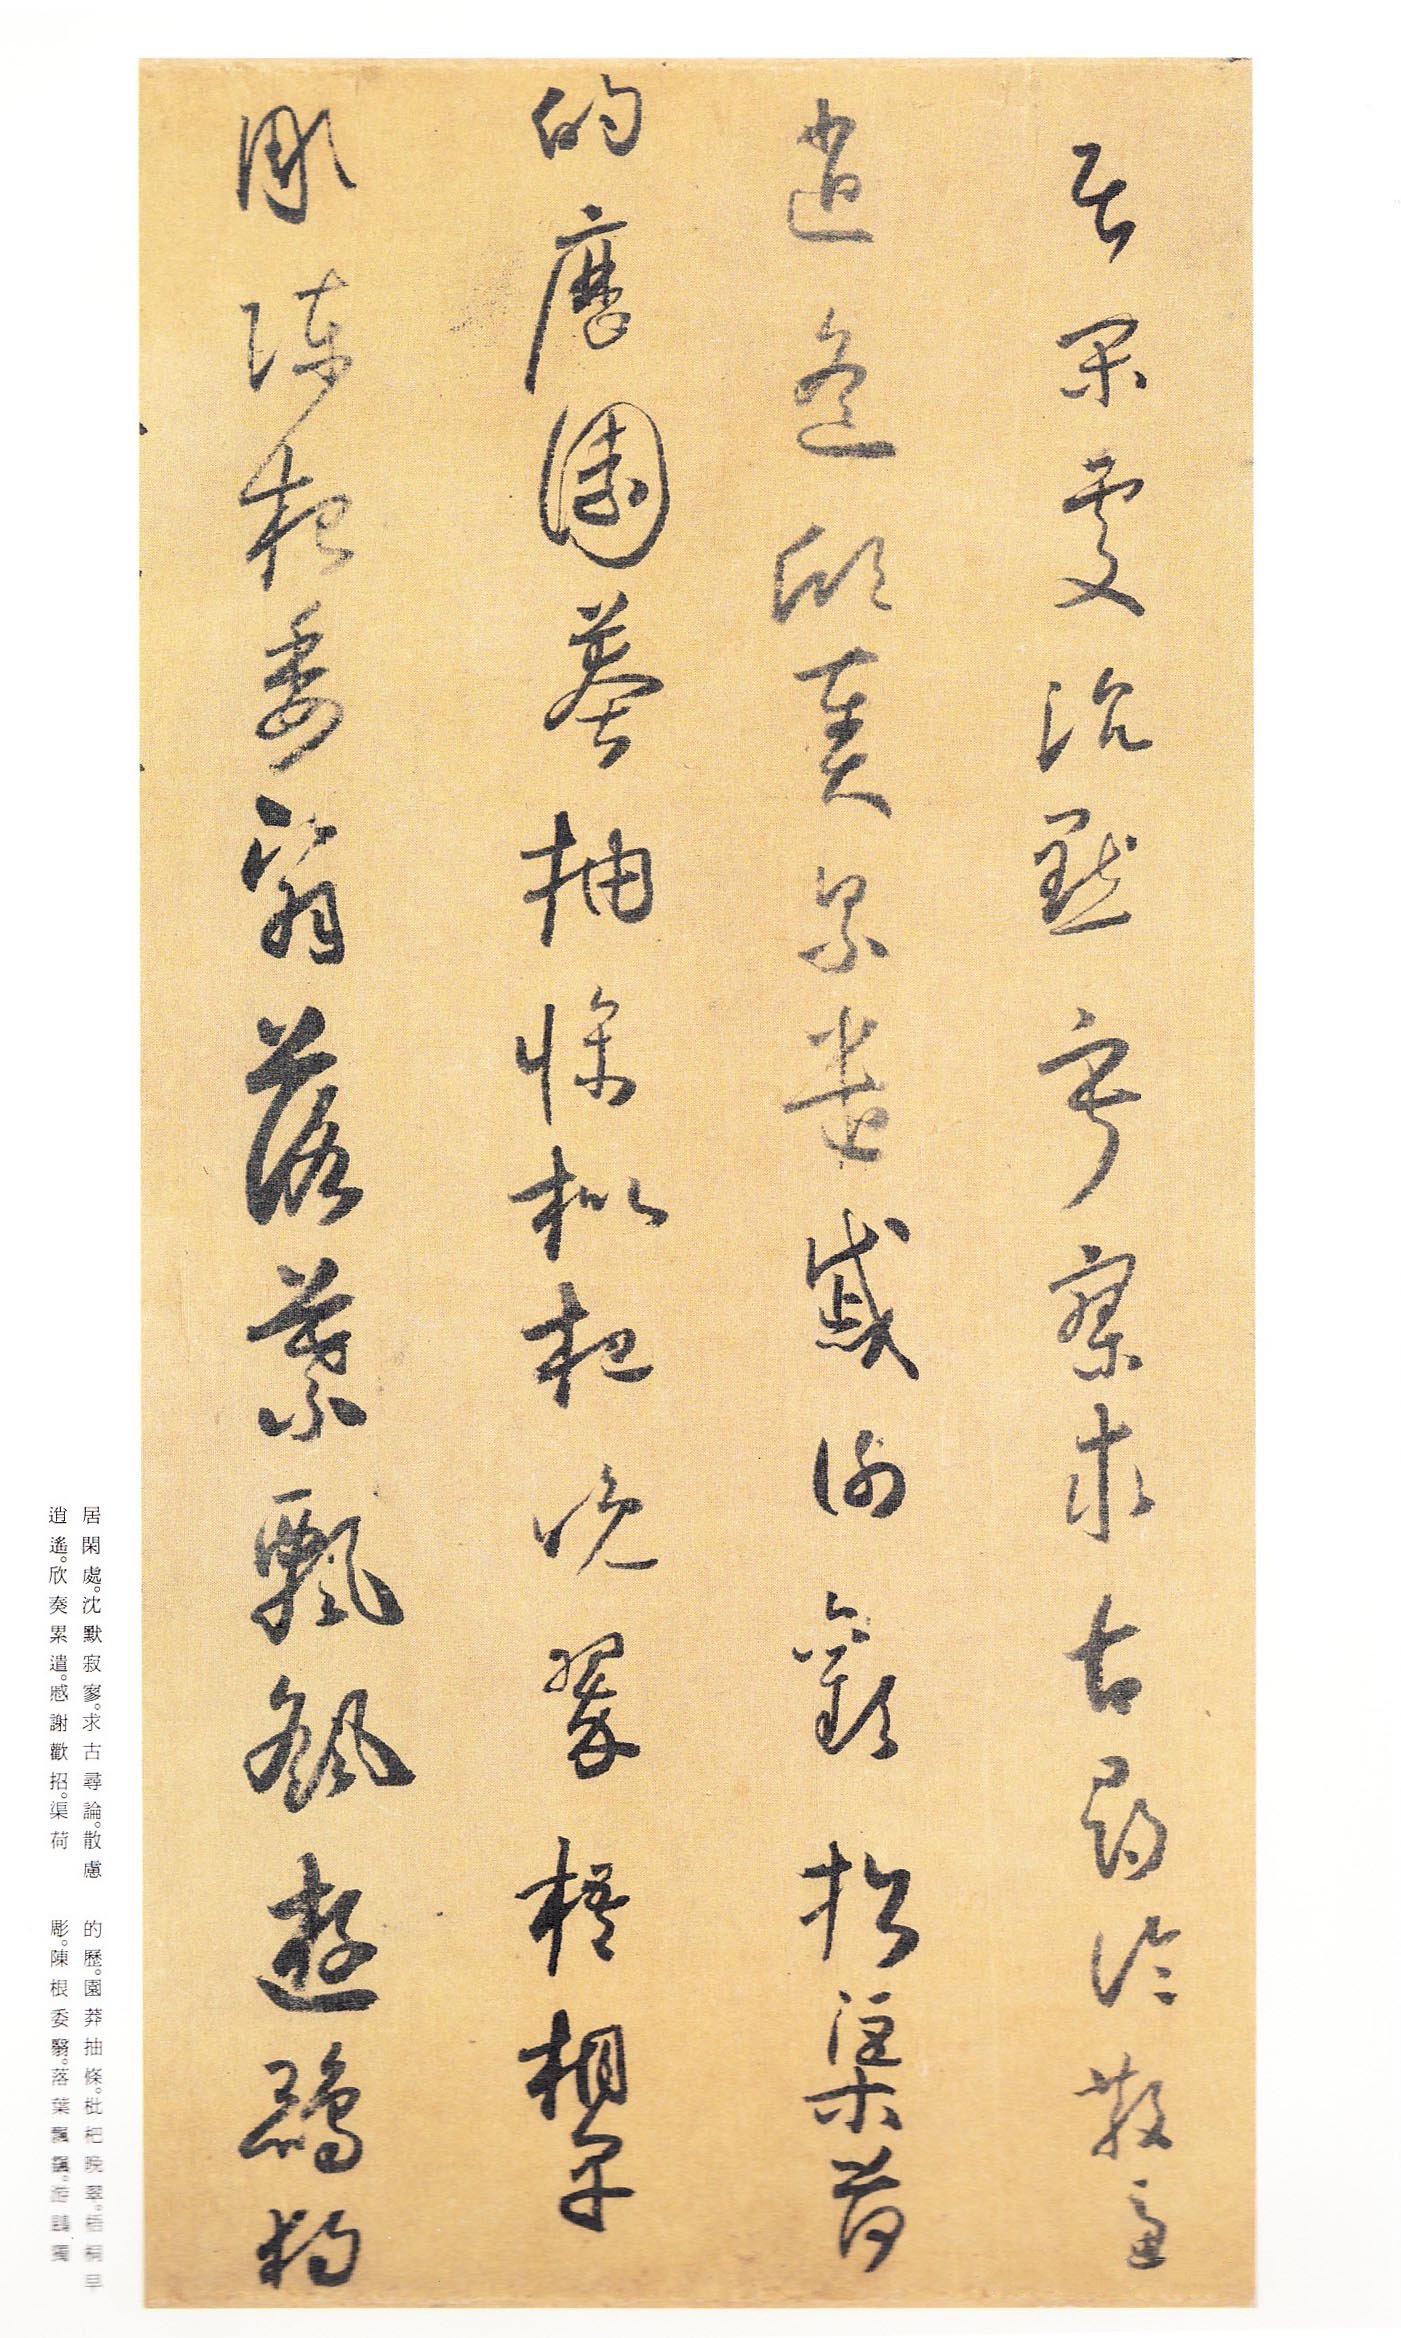 居閑處沈默寂寥求古尋論散慮
逍遙欣奏累遣慼謝歡招渠荷
的歷園莽抽條枇杷晚翠梧桐早
彫陳根委翳落葉飄颻遊鵾獨
居閑處。沈默寂寥。求古尋論。散慮
逍遙。欣奏累遣。慼謝歡招。渠荷
的歷。園莽抽條。枇杷晚翠。梧桐早
彫。陳根委翳。落葉飄颻。游鵾獨